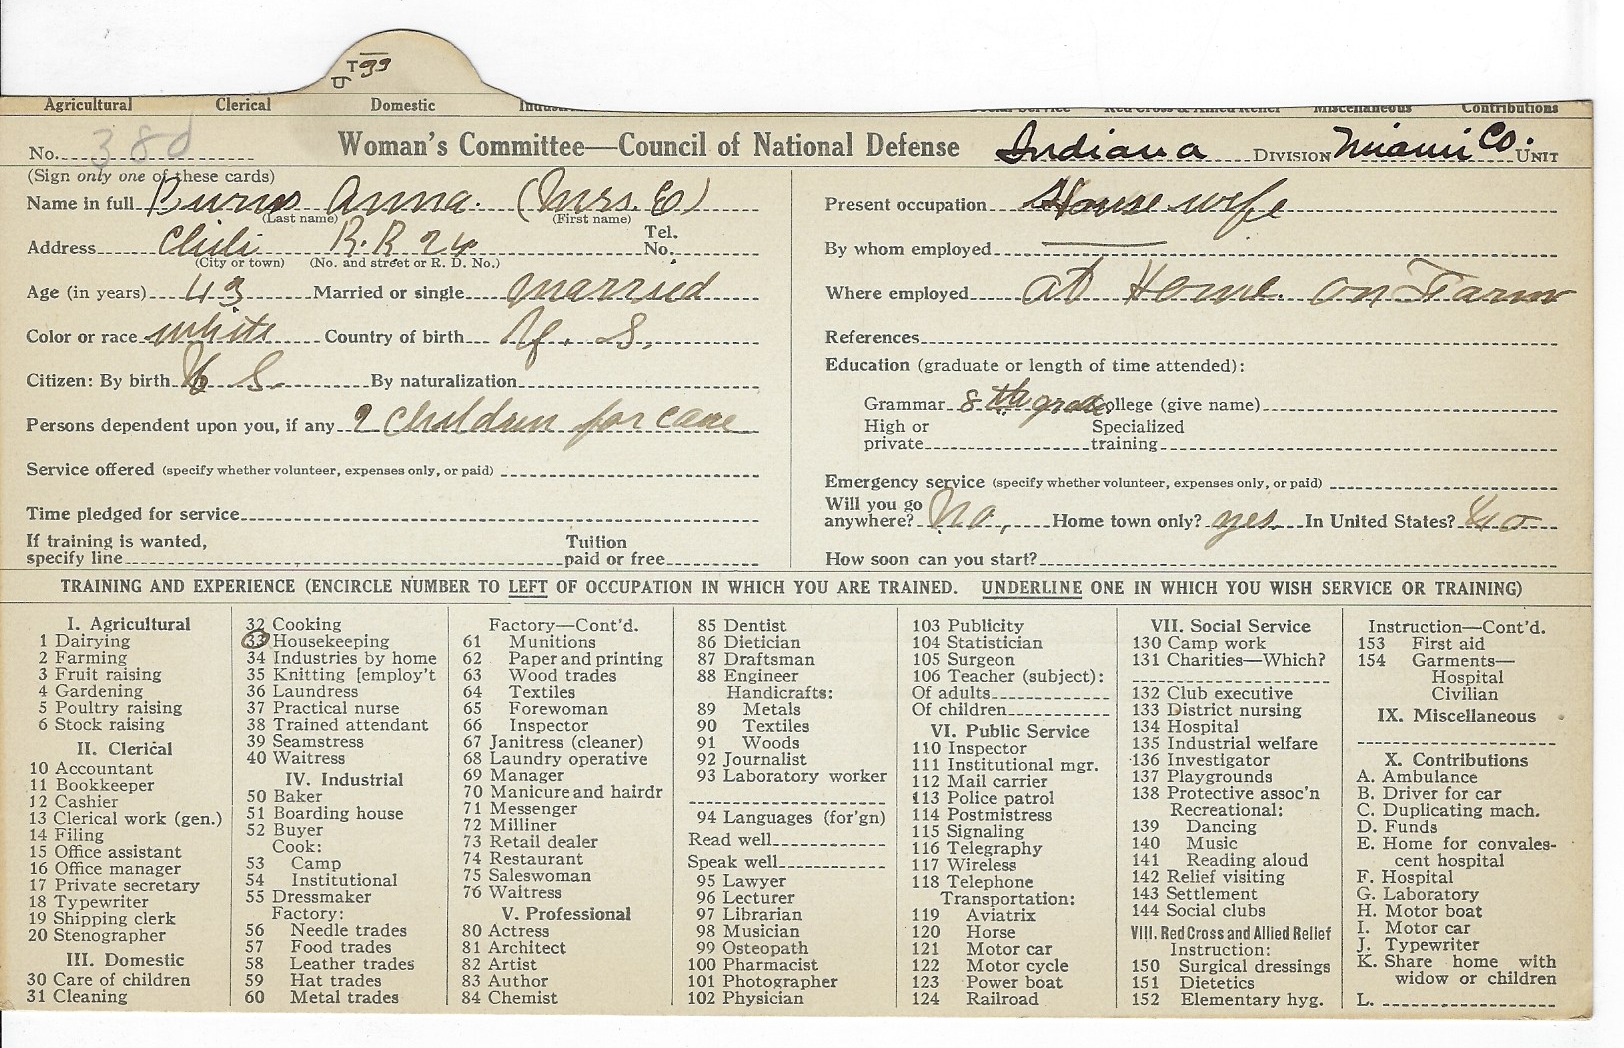 T 33
Agricultural Clerical Domestic Contributions
No. 380 Woman's Committee—Council of National Defense Indiana DIVISION Miami Co. UNIT
(Sign only one of these cards)
Name in full Burns Anna. (Mrs. E)
(Last name) (First name)
Address Chili R.R. 24 Tel. No.
(City or town) (No. and street or R. D. No.)
Age (in years) 43 Married or single married
Color or race white Country of birth U. S.
Citizen: By birth U S. By naturalization
Persons dependent upon you, if any 2 children for care
Service offered (specify whether volunteer, expenses only, or paid)
Time pledged for service
If training is wanted, specify line Tuition paid or free
Present occupation House wife
By whom employed
Where employed at Home. on Farm
References
Education (graduate or length of time attended):
Grammar 8th grade College (give name)
High or private Specialized training
Emergency service (specify whether volunteer, expenses only, or paid)
Will you go anywhere? No, Home town only? yes In United States? no
How soon can you start?
TRAINING AND EXPERIENCE (ENCIRCLE NUMBER TO LEFT OF OCCUPATION IN WHICH YOU ARE TRAINED. UNDERLINE ONE IN WHICH YOU WISH SERVICE OR TRAINING)
I. Agricultural
1 Dairying
2 Farming
3 Fruit raising
4 Gardening
5 Poultry raising
6 Stock raising
II. Clerical
10 Accountant
11 Bookkeeper
12 Cashier
13 Clerical work (gen.)
14 Filing
15 Office assistant
16 Office manager
17 Private secretary
18 Typewriter
19 Shipping clerk
20 Stenographer
III. Domestic
30 Care of children
31 Cleaning
32 Cooking
33 Housekeeping
34 Industries by home
35 Knitting [employ't
36 Laundress
37 Practical nurse
38 Trained attendant
39 Seamstress
40 Waitress
IV. Industrial
50 Baker
51 Boarding house
52 Buyer
Cook:
53 Camp
54 Institutional
55 Dressmaker
Factory:
56 Needle trades
57 Food trades
58 Leather trades
59 Hat trades
60 Metal trades
Factory—Cont'd.
61 Munitions
62 Paper and printing
63 Wood trades
64 Textiles
65 Forewoman
66 Inspector
67 Janitress (cleaner)
68 Laundry operative
69 Manager
70 Manicure and hairdr
71 Messenger
72 Milliner
73 Retail dealer
74 Restaurant
75 Saleswoman
76 Waitress
V. Professional
80 Actress
81 Architect
82 Artist
83 Author
84 Chemist
85 Dentist
86 Dietician
87 Draftsman
88 Engineer
Handicrafts:
89 Metals
90 Textiles
91 Woods
92 Journalist
93 Laboratory worker
94 Languages (for'gn)
Read well
Speak well
95 Lawyer
96 Lecturer
97 Librarian
98 Musician
99 Osteopath
100 Pharmacist
101 Photographer
102 Physician
103 Publicity
104 Statistician
105 Surgeon
106 Teacher (subject):
Of adults
Of children
VI. Public Service
110 Inspector
111 Institutional mgr.
112 Mail carrier
113 Police patrol
114 Postmistress
115 Signaling
116 Telegraphy
117 Wireless
118 Telephone
Transportation:
119 Aviatrix
120 Horse
121 Motor car
122 Motor cycle
123 Power boat
124 Railroad
VII. Social Service
130 Camp work
131 Charities—Which?
132 Club executive
133 District nursing
134 Hospital
135 Industrial welfare
136 Investigator
137 Playgrounds
138 Protective assoc'n
Recreational:
139 Dancing
140 Music
141 Reading aloud
142 Relief visiting
143 Settlement
144 Social clubs
VIII. Red Cross and Allied Relief
Instruction:
150 Surgical dressings
151 Dietetics
152 Elementary hyg.
Instruction—Cont'd.
153 First aid
154 Garments—
Hospital
Civilian
IX. Miscellaneous
X. Contributions
A. Ambulance
B. Driver for car
C. Duplicating mach.
D. Funds
E. Home for convales-
cent hospital
F. Hospital
G. Laboratory
H. Motor boat
I. Motor car
J. Typewriter
K. Share home with
widow or children
L.